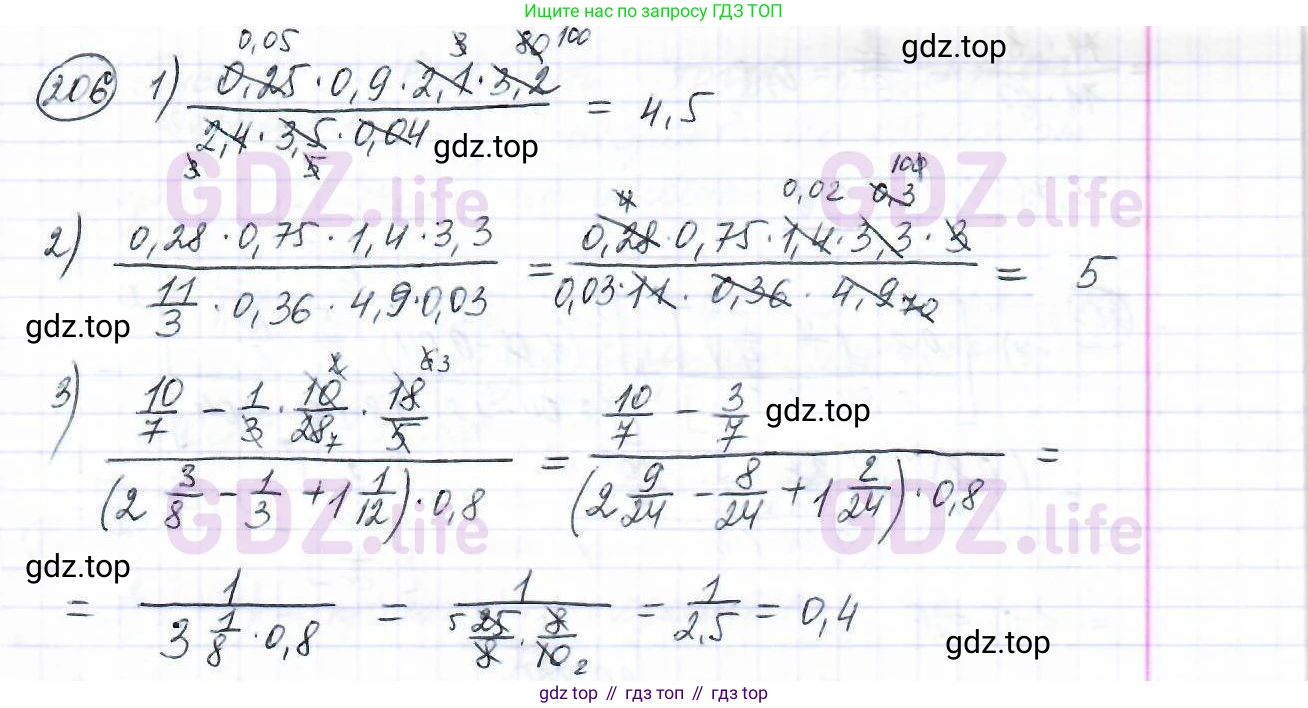 Ищите нас по запросу ГДЗ ТОП
gdz.top
206 1) (0,25 · 0,9 · 2,1 · 3,2) / (2,4 · 3,5 · 0,04) = 4,5
0,05 3 80 100
3 5
gdz.top
GDZ.life GDZ.life
2) (0,28 · 0,75 · 1,4 · 3,3) / (11/3 · 0,36 · 4,9 · 0,03) = (0,28 · 0,75 · 1,4 · 3,3 · 3) / (0,03 · 11 · 0,36 · 4,9) = 5
4 0,02 0,3 100
70
gdz.top
3) (10/7 − 1/3 · 10/28 · 18/5) / ((2 3/8 − 1/3 + 1 1/12) · 0,8) = (10/7 − 3/7) / ((2 9/24 − 8/24 + 1 2/24) · 0,8) =
2 6 3
7
gdz.top
GDZ.life GDZ.life
gdz.top
= 1 / (3 1/8 · 0,8) = 1 / (25/8 · 8/10) = 1/2,5 = 0,4
5 2
gdz.top
gdz top // гдз топ // gdz top